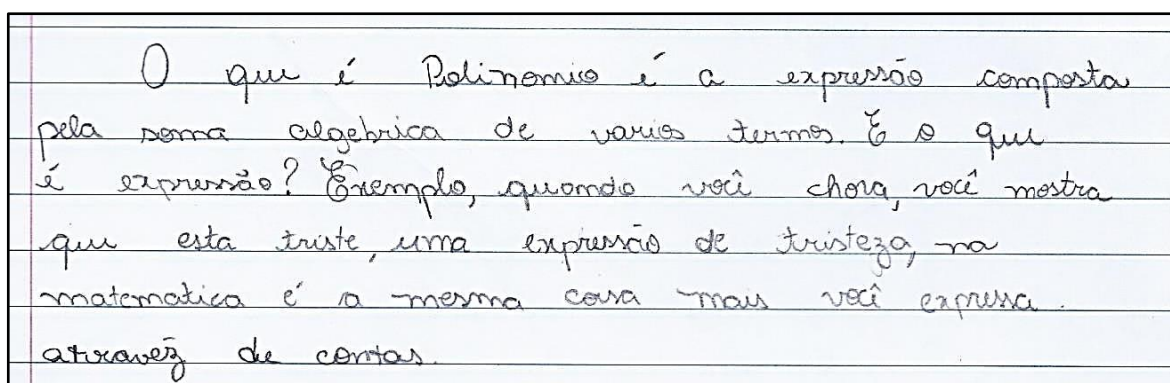 O que é Polinomio é a expressão composta
pela soma algebrica de varios termos. E o que
é expressão? Exemplo, quando você chora, você mostra
que esta triste, uma expressão de tristeza, na
matematica é a mesma coisa mais você expressa
atravez de contas.